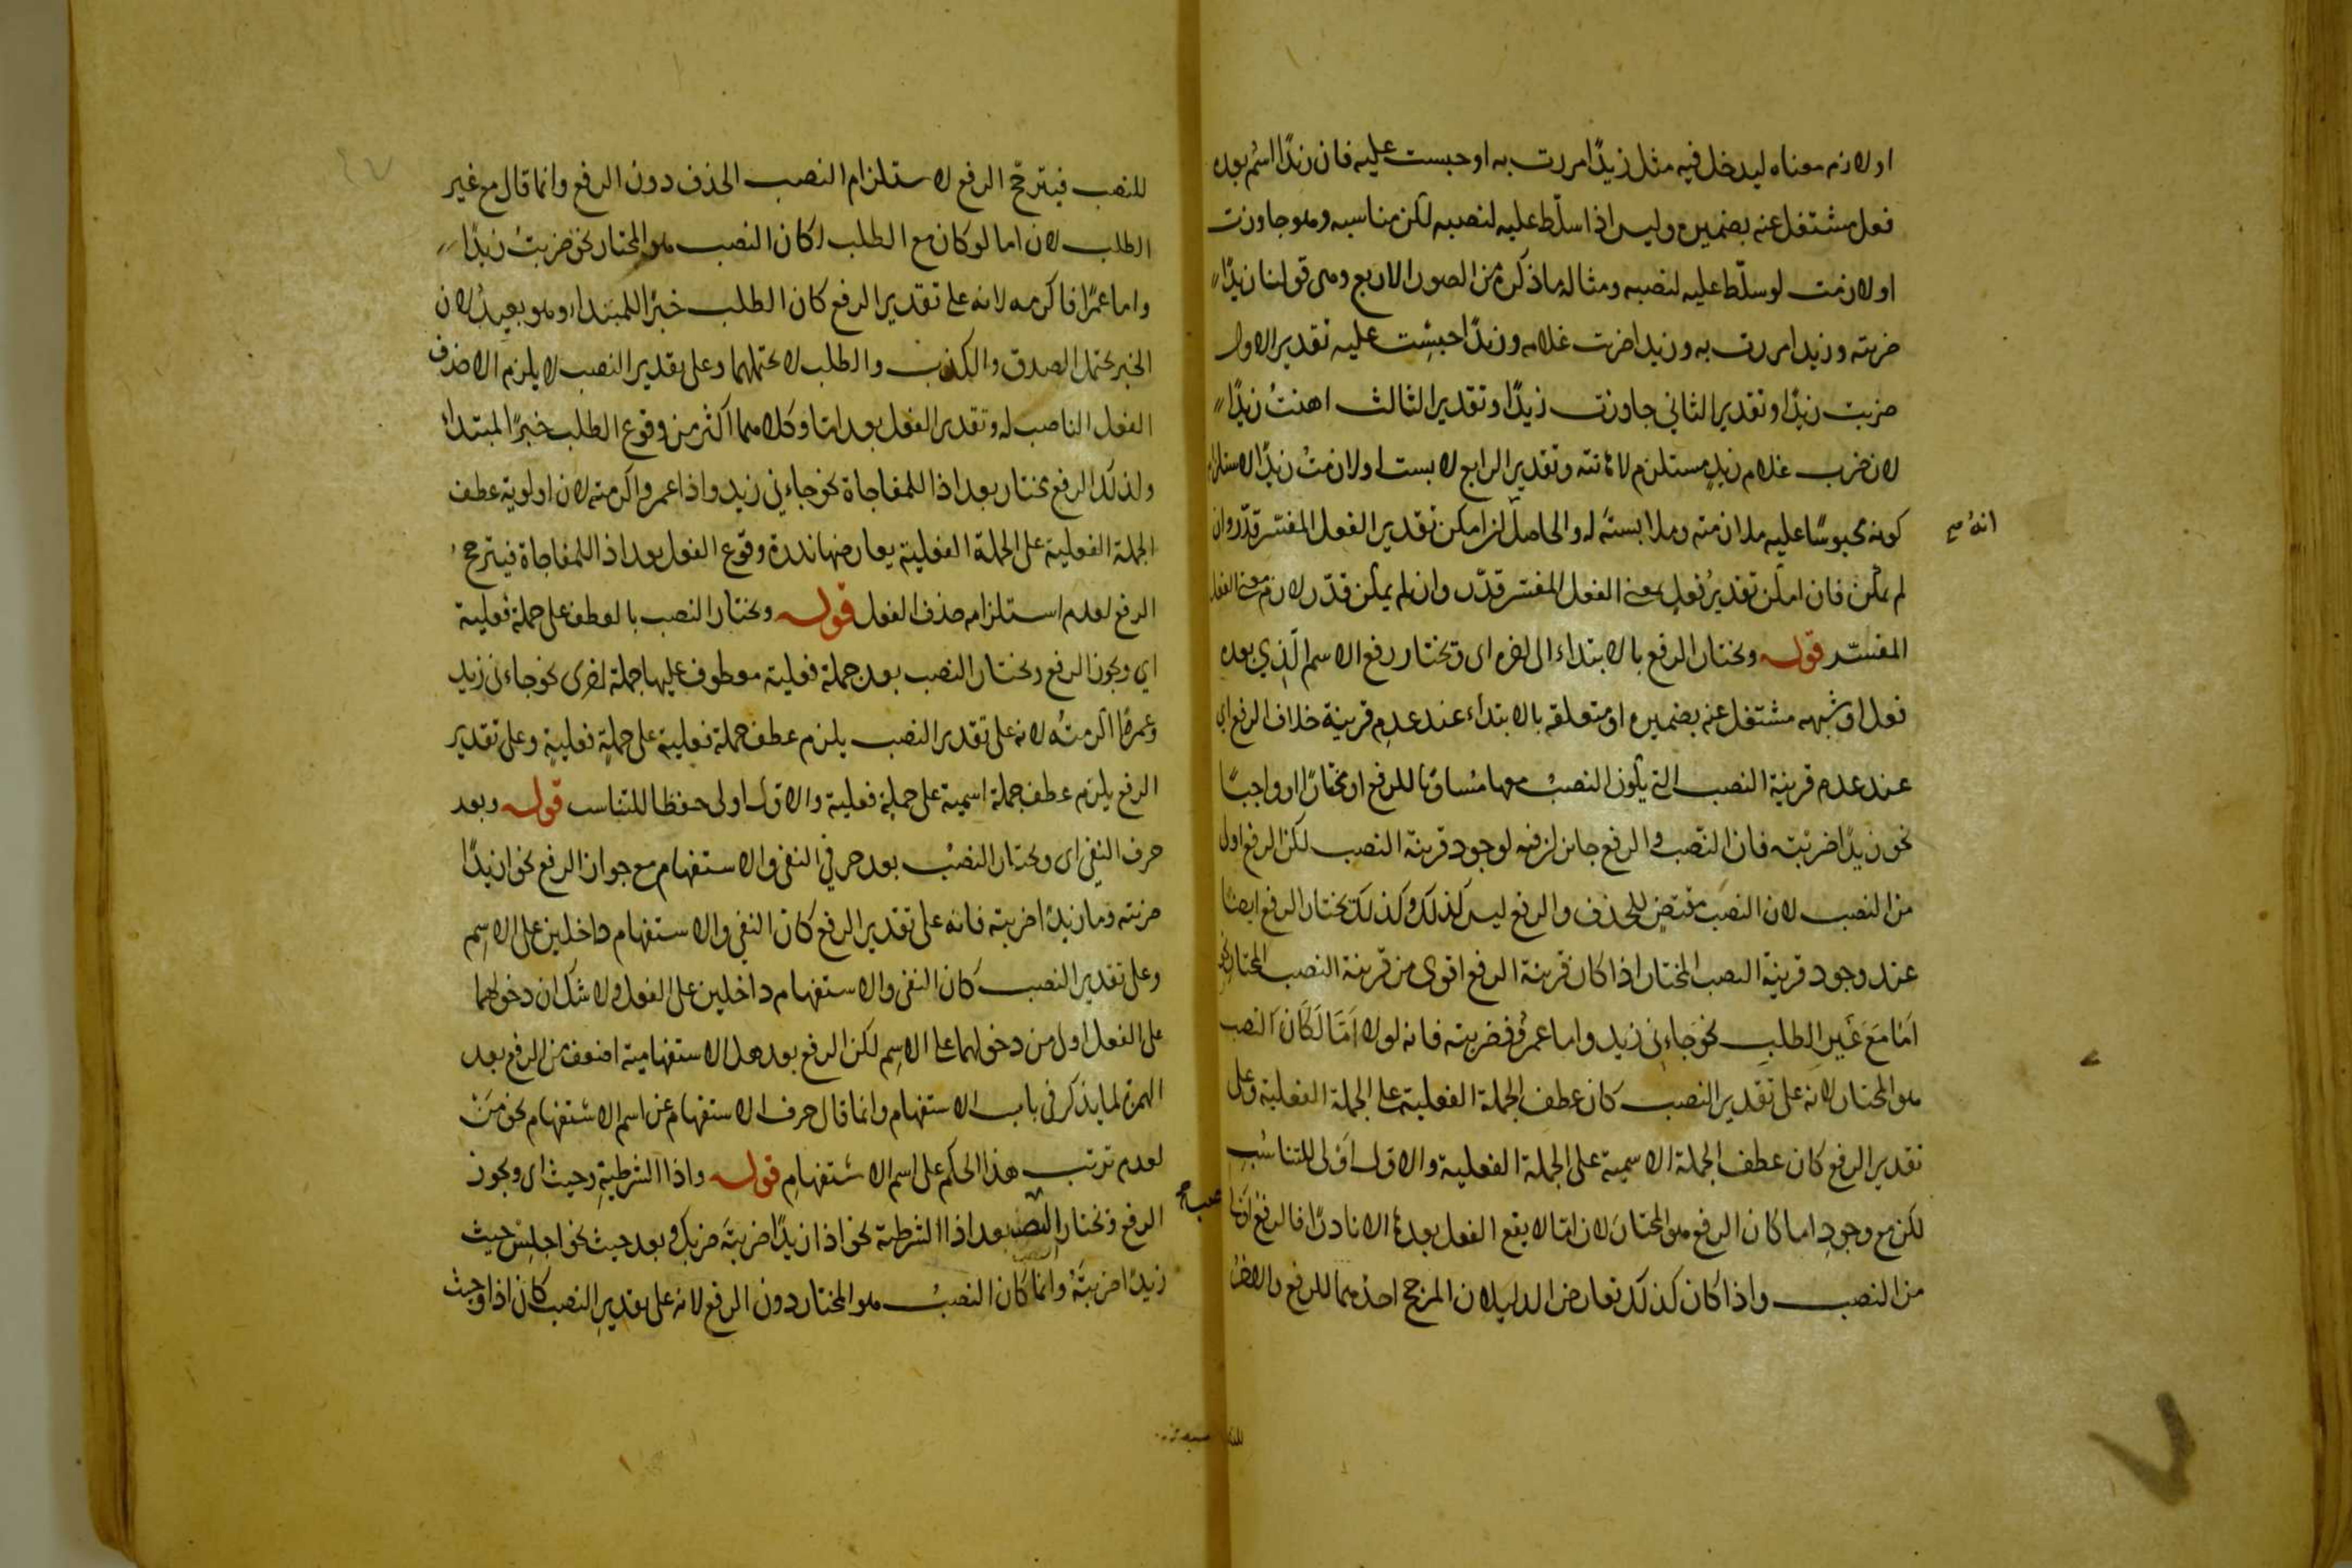 او لازم معناه ليدخل فيه مثل زيدًا مررت به او حبست عليه فان زيدًا اسم بعده
فعل مشتغل عنه بضميره وليس اذا سلّط عليه لنصبه لكن مناسبه وهو جاوزت
او لازمت لو سلّط عليه لنصبه ومثاله ما ذكره من الصور الاربع وهى قولنا زيدًا
ضربته وزيدا مررت به وزيدا ضربت غلامه وزيدًا حبست عليه تقدير الاول
ضربت زيدًا وتقدير الثاني جاوزت زيدًا وتقدير الثالث اهنتُ زيدًا
لان ضرب غلام زيدٍ مستلزم لاهانته وتقدير الرابع لابست او لازمتُ زيدًا لاستلزام
كونه محبوسًا عليه ملازمته وملابسته له والحاصل ان امكن تقدير الفعل المفسّر قدّر وان
انه صح
لم يمكن فان امكن تقديرُ فعلٍ بمعنى الفعل المفسّر قدّر وان لم يمكن قدّر لازم معنى الفعل
المفسّر قوله ويختار الرفع بالابتداء الى اخره اى ويختار رفع الاسم الّذي بعده
فعل او شبهه مشتغل عنه بضميره او متعلقه بالابتداء عند عدمِ قرينة خلاف الرفع اى
عند عدم قرينة النصب التي يكون النصبُ معها مُساويًا للرفع او مختارًا او واجبًا
نحو زيدًا ضربته فان النّصب والرفع جائزان فيه لوجود قرينة النصب لكن الرفع اولى
من النصب لان النصب مقتضٍ للحذف والرفع ليس كذلك وكذلك يختار الرفع ايضًا
عند وجود قرينة النصب المختار اذا كان قرينة الرفع اقوى من قرينة النصب المختار نحو
اَمّا مَعَ غَيرِ الطلبِ نحو جَاءنى زيد واما عمرٌو فضربته فانه لولا اَمّا لَكَانَ النصب
هو المختار لانه على تقدير النصب كان عطف الجملة الفعلية على الجملة الفعلية وعلى
تقدير الرفع كان عطف الجملة الاسمية على الجملة الفعلية والاوّل اَوْلى للتناسُبِ
لكن مع وجودِ اما كان الرفع هو المختارَ لان امّا لا يقع الفعل بعدها الا نادرًا فالرفع
من النصب واذا كان كذلك تعارض الدليلان المرجح احدهما للرفع والاخرُ
للنصب فيترجّح الرفع لاستلزام النصب الحذف دون الرفع وانما قال مع غير
الطلب لان اما لو كان مع الطلب لكان النصب هو المختار نحو ضربتُ زيدًا
واما عمرًا فاكرمه لانه على تقدير الرفع كان الطلب خبرًا للمبتداء وهو بعيدٌ لان
الخبر يحتمل الصدق والكذب والطلب لا يحتملهما وعلى تقدير النصب لا يلزم الا حذف
الفعل الناصب له وتقدير الفعل بعد امّا وكلاهما اكثر من وقوع الطلب خبرًا لمبتداءٍ
ولذلك الرفع يختار بعد اذا للمفاجاة نحو جاءني زيد واذا عمرو اكرمته لان اولوية عطف
الجملة الفعلية على الجملة الفعلية يعارضها ندرة وقوع الفعل بعد اذا للمفاجاة فيترجحُ
الرفع لعدم استلزامه حذف الفعل قوله ويختار النصب بالعطف على جملة فعلية
اي ويجوز الرفع ويختار النصب بعد جملة فعلية معطوف عليها جملة اخرى نحو جاءنى زيد
وعمرًا اكرمتُه لانه على تقدير النصب يلزم عطف جملة فعلية على جملةٍ فعليةٍ وعلى تقدير
الرفع يلزم عطف جملة اسمية على جملة فعلية والاوّل اولى حفظا للتناسب قوله وبعد
حرف النفي اى ويختار النصبُ بعد حرفي النفى والاستفهام مع جواز الرفع نحو ازيدًا
ضربته وما زيدًا ضربته فانه على تقدير الرفع كان النفي والاستفهام داخلين على الاسم
وعلى تقدير النصب كان النفى والاستفهام داخلين على الفعل ولا شك ان دخولهما
على الفعل اولى من دخولهما على الاسِم لكن الرفع بعد هل الاستفهامية اضعف من الرفع بعد
الهمزة لما يذكر فى باب الاستفهام وانما قال حرف الاستفهام عن اسم الاستفهام نحو مَنْ
لعدم ترتب هذا الحكم على اسم الاستفهامِ قوله واذا الشرطيةِ وحيث اى ويجوز
الرفع ويختار النصب بعد اذا الشرطية نحو اذا زيدًا ضربتَه ضربك وبعد حيث نحو اجلِسْ حيث
زيدًا ضربتَهُ وانما كان النصبُ هو المختار دون الرفع لانه على تقديرِ النصب كان اذا وحيث